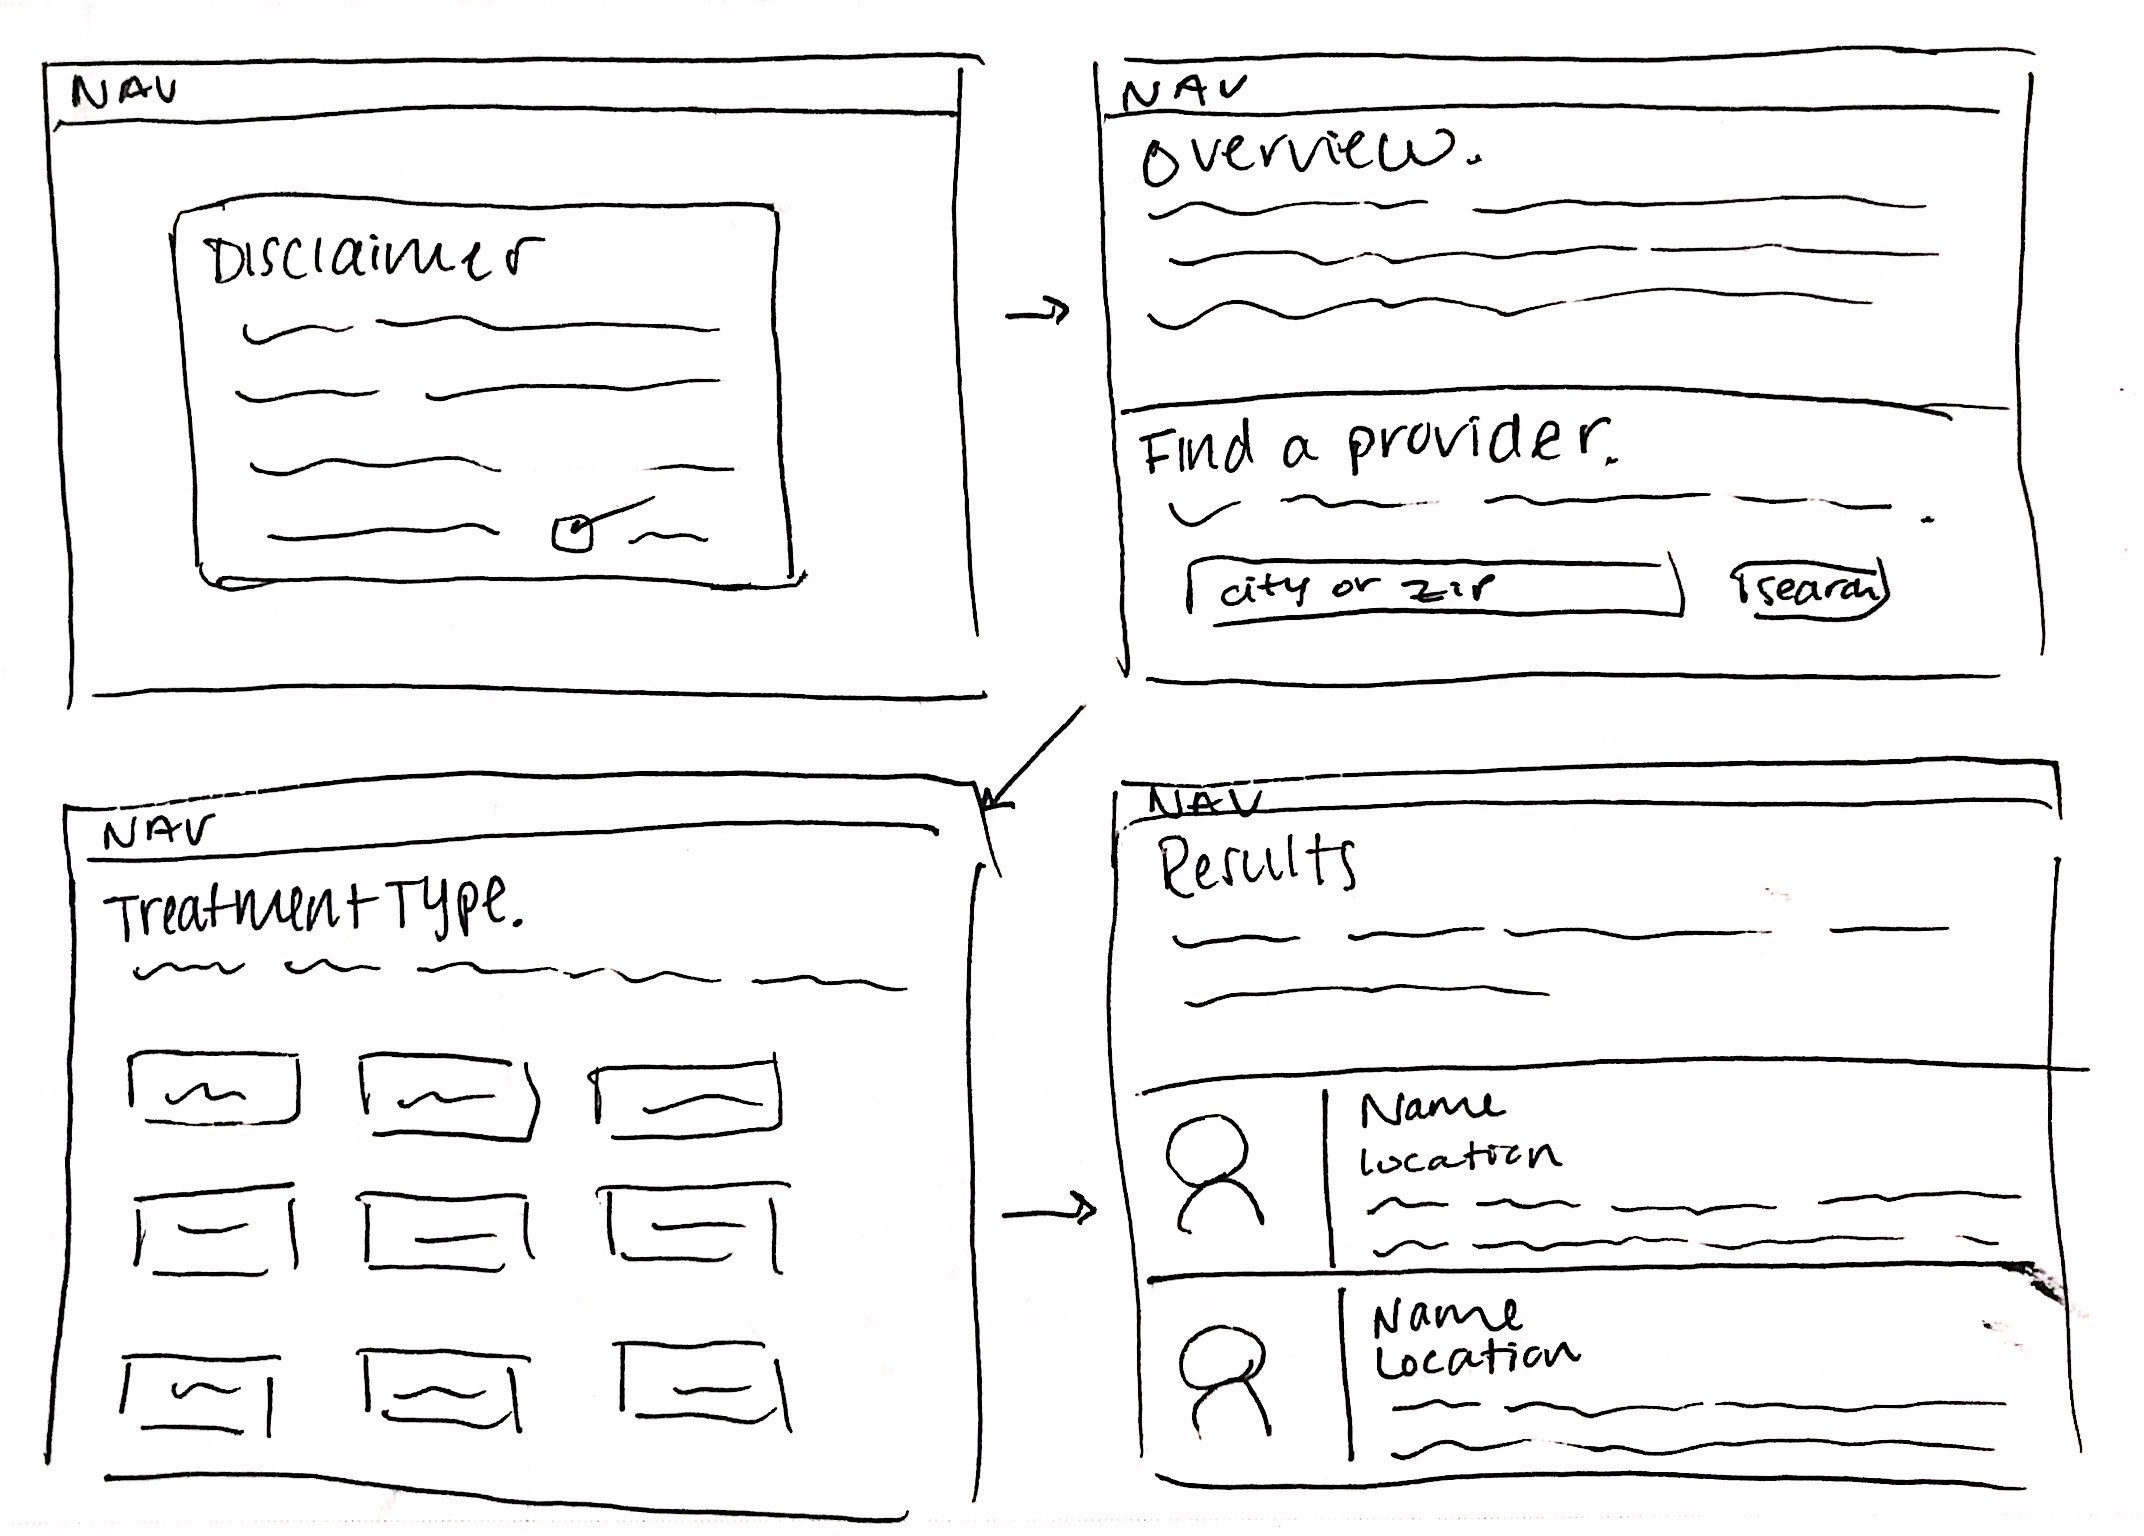 NAV
Disclaimer
NAV
Overview.
Find a provider.
city or zip
search
NAV
Treatment Type.
NAV
Results
Name
Location
Name
Location